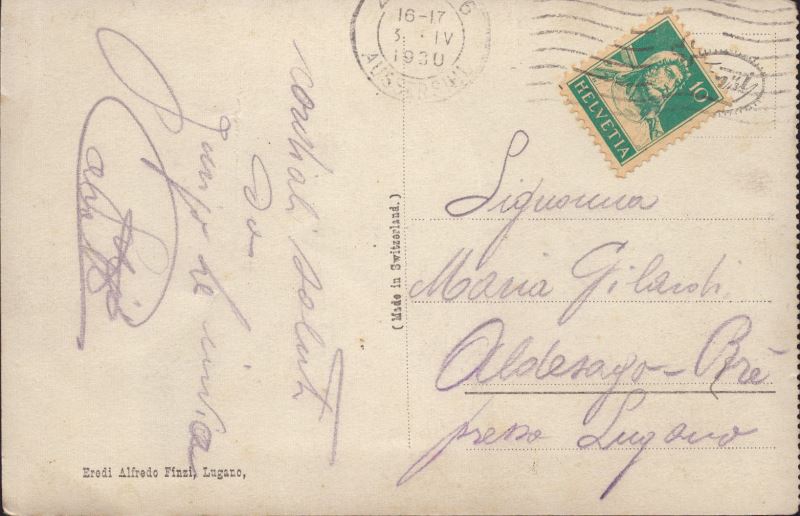 16-17
3. IV
1930
HELVETIA
10
Signorina
Maria Gilardi
Aldesago-Brè
presso Lugano
cordiali saluti
da
(Made in Switzerland.)
Eredi Alfredo Finzi, Lugano,